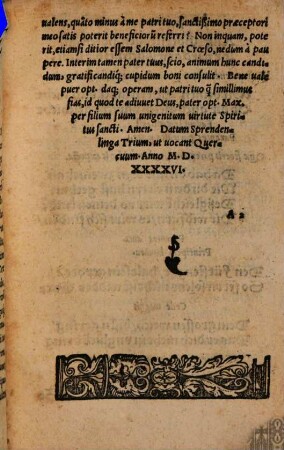 ualens, quâto minus à me patri tuo, sanctißimo præceptori
meo satis poterit beneficiorũ referri? Non inquam, pote
rit, etiamsi ditior essem Salomone et Crœso, nedũm à pau
pere. Interim tamen pater tuus, scio, animum hunc candi⸗
dum, gratificandiq́; cupidum boni consulit. Bene uale
puer opt. daq́; operam, ut patri tuo q̃ simillimus
fias, id quod te adiuuet Deus, pater opt. Max.
per filium suum unigenitum uirtute Spiri⸗
tus sancti. Amen. Datum Sprenden⸗
linga Trium, ut uocant Quer⸗
cuum. Anno M. D.
XXXXVI.
A 2